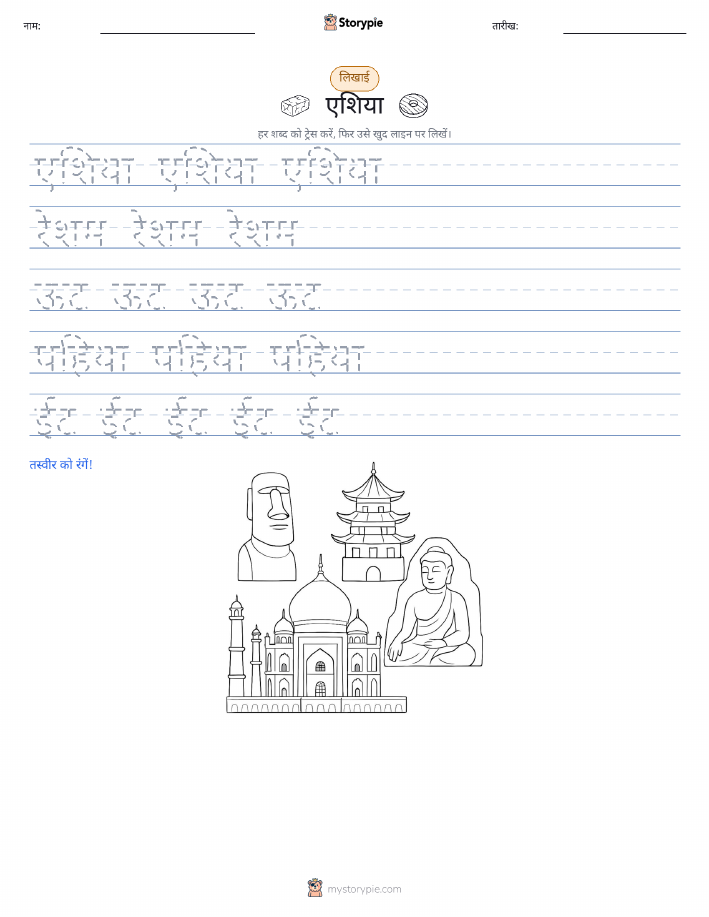 नाम: Storypie तारीख:
लिखाई
एशिया
हर शब्द को ट्रेस करें, फिर उसे खुद लाइन पर लिखें।
एशिया एशिया एशिया
रेशम रेशम रेशम
ऊट ऊट ऊट ऊट
पहिया पहिया पहिया
ईट ईट ईट ईट ईट
तस्वीर को रंगें!
mystorypie.com